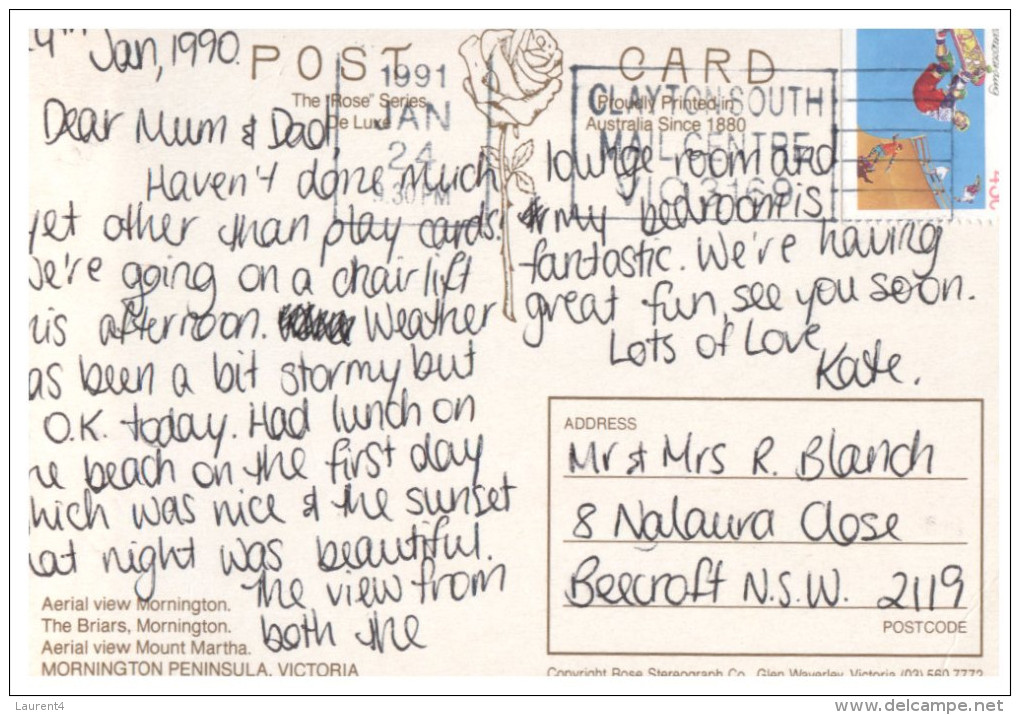 24th Jan, 1990.
POST CARD
The "Rose" Series
De Luxe
Proudly Printed in
Australia Since 1880
1991
JAN
24
9.30PM
CLAYTON SOUTH
MAIL CENTRE
VIC 3169
Dear Mum & Dad,
Haven't done much
yet other than play cards.
we're going on a chair lift
his afternoon. Weather
as been a bit stormy but
O.K. today. Had lunch on
he beach on the first day
hich was nice & the sunset
hat night was beautiful.
The view from
both the
lounge room and
my bedroom is
fantastic. We're having
great fun, see you soon.
Lots of Love
Kate.
Aerial view Mornington.
The Briars, Mornington.
Aerial view Mount Martha.
MORNINGTON PENINSULA, VICTORIA
ADDRESS
Mr & Mrs R. Blanch
8 Nalaura Close
Beecroft N.S.W. 2119
POSTCODE
Copyright Rose Stereograph Co., Glen Waverley, Victoria (03) 560 7772
Laurent4
delcampe.net